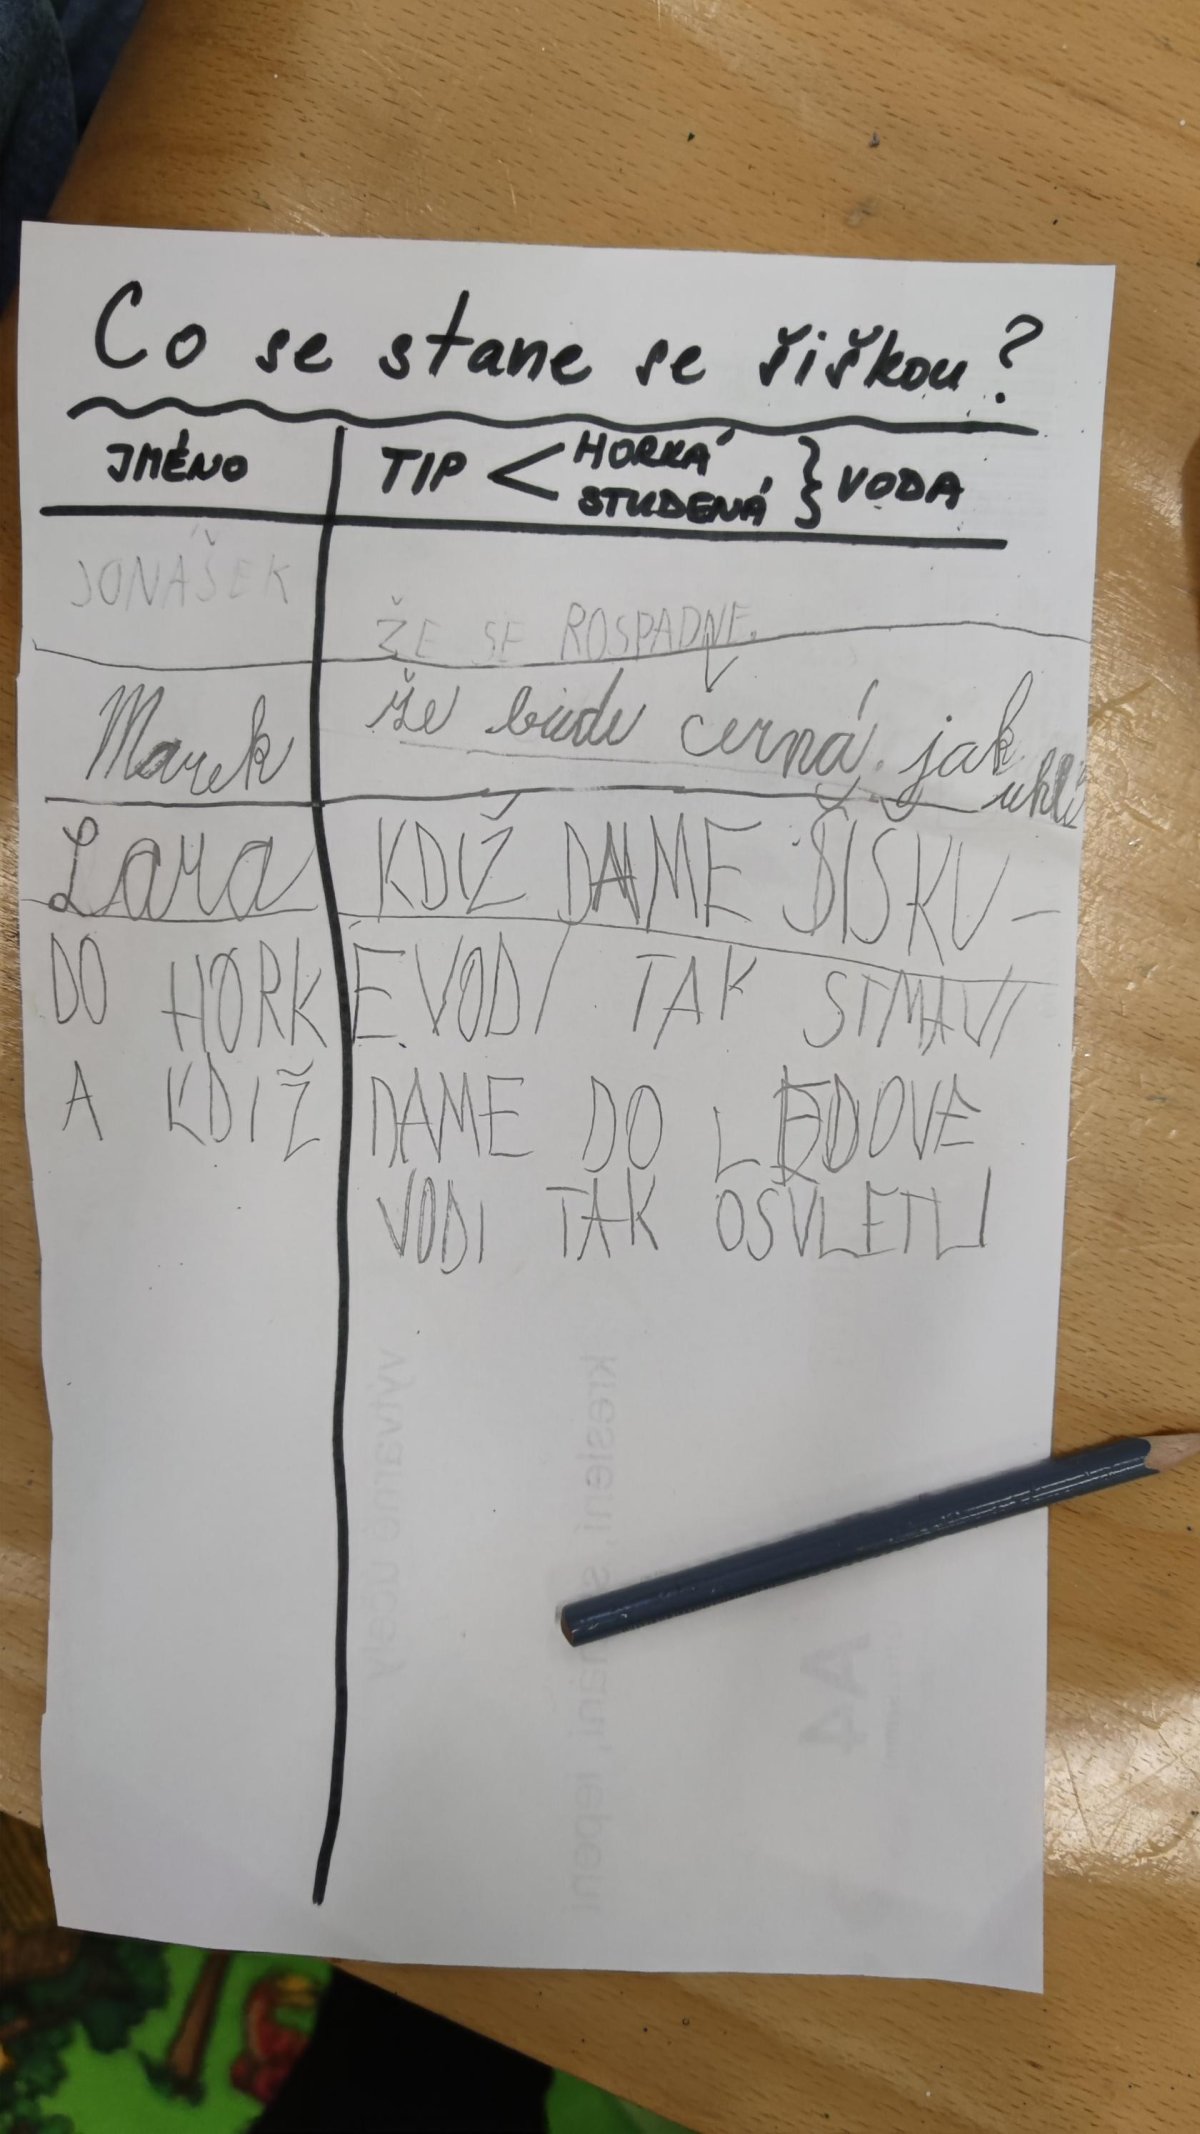 Co se stane se šiškou?
JMÉNO TIP < HORKÁ STUDENÁ } VODA
JONÁŠEK ŽE SE ROSPADNE.
Marek že bude černá. jak uhlí
Lara KDIŽ DAME ŠIŠKU-
DO HORKÉ VODI TAK STMAVI
A KDIŽ DAME DO LEDOVE
VODI TAK OSVLETLI
výtvarné účely
kreslení, lepení
A4